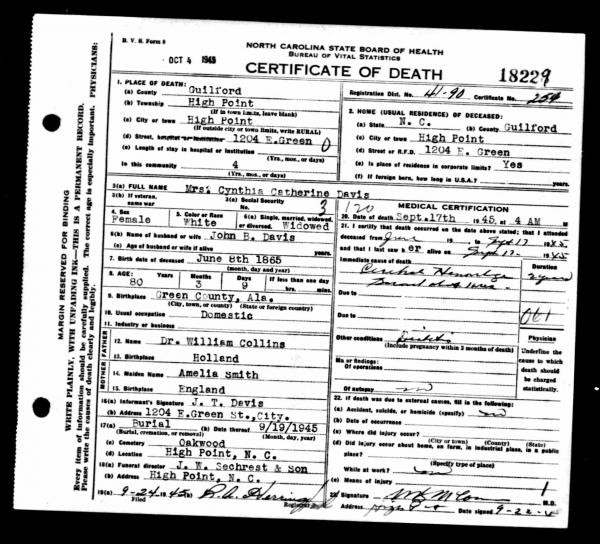 B. V. S. Form 8
OCT 4 1945
NORTH CAROLINA STATE BOARD OF HEALTH
BUREAU OF VITAL STATISTICS
CERTIFICATE OF DEATH
18229
Registration Dist. No. 41-90 Certificate No. 254
1. PLACE OF DEATH:
(a) County Guilford
(b) Township High Point
(If in town limits, leave blank)
(c) City or town High Point
(If outside city or town limits, write RURAL)
(d) Street, hospital or institution 1204 E.Green
(e) Length of stay in hospital or institution
(Yrs., mos., or days)
In this community 4
(Yrs., mos., or days)
2. HOME (USUAL RESIDENCE) OF DECEASED:
(a) State N. C. (b) County Guilford
(c) City or town High Point
(d) Street or R.F.D. 1204 E. Green
(e) Is place of residence in corporate limits? Yes
(f) If foreign born, how long in U.S.A.? years.
3(a) FULL NAME Mrs. Cynthia Catherine Davis
3(b) If veteran, name war
3(c) Social Security No.
4. Sex Female
5. Color or Race White
6(a) Single, married, widowed, or divorced. Widowed
6(b) Name of husband or wife John B. Davis
6(c) Age of husband or wife if alive years
7. Birth date of deceased June 8th 1865
(month, day and year)
8. AGE: Years Months Days If less than one day
80 3 9 hrs. min.
9. Birthplace Green County, Ala.
(City, town, or county) (State or foreign country)
10. Usual occupation Domestic
11. Industry or business
FATHER
12. Name Dr. William Collins
13. Birthplace Holland
MOTHER
14. Maiden Name Amelia Smith
15. Birthplace England
16(a) Informant's Signature J. T. Davis
(b) Address 1204 E.Green St.,City.
17(a) Burial (b) Date thereof 9/19/1945
(Burial, cremation, or removal) (Month, day, year)
(c) Cemetery Oakwood
(d) Location High Point, N. C.
18(a) Funeral director J. W. Sechrest & Son
(b) Address High Point, N. C.
19(a) 9-24 1945 (b) R. A. Herring
Filed Registrar
MEDICAL CERTIFICATION
20. Date of death Sept.17th 1945, at 4 AM M.
21. I certify that death occurred on the date above stated; that I attended
deceased from June 19 to Sept 17 1945
and that I last saw her alive on Sept 17 1945
Immediate cause of death Duration
Cerebral Hemorrhage
Due to
Due to
Other conditions
(Include pregnancy within 3 months of death)
Ma or findings:
Of operations
Of autopsy no
Physician
Underline the cause to which death should be charged statistically.
22. If death was due to external causes, fill in the following:
(a) Accident, suicide, or homicide (specify) no
(b) Date of occurrence
(c) Where did injury occur?
(City or town) (County) (State)
(d) Did injury occur about home, on farm, in industrial place, in public place?
(Specify type of place)
While at work?
(e) Means of injury
23. Signature M.D.
Address Date signed 9-22-4
MARGIN RESERVED FOR BINDING
WRITE PLAINLY, WITH UNFADING INK—THIS IS A PERMANENT RECORD.
Every item of information should be carefully supplied. The correct age is especially important. PHYSICIANS:
Please write the causes of death clearly and legibly.